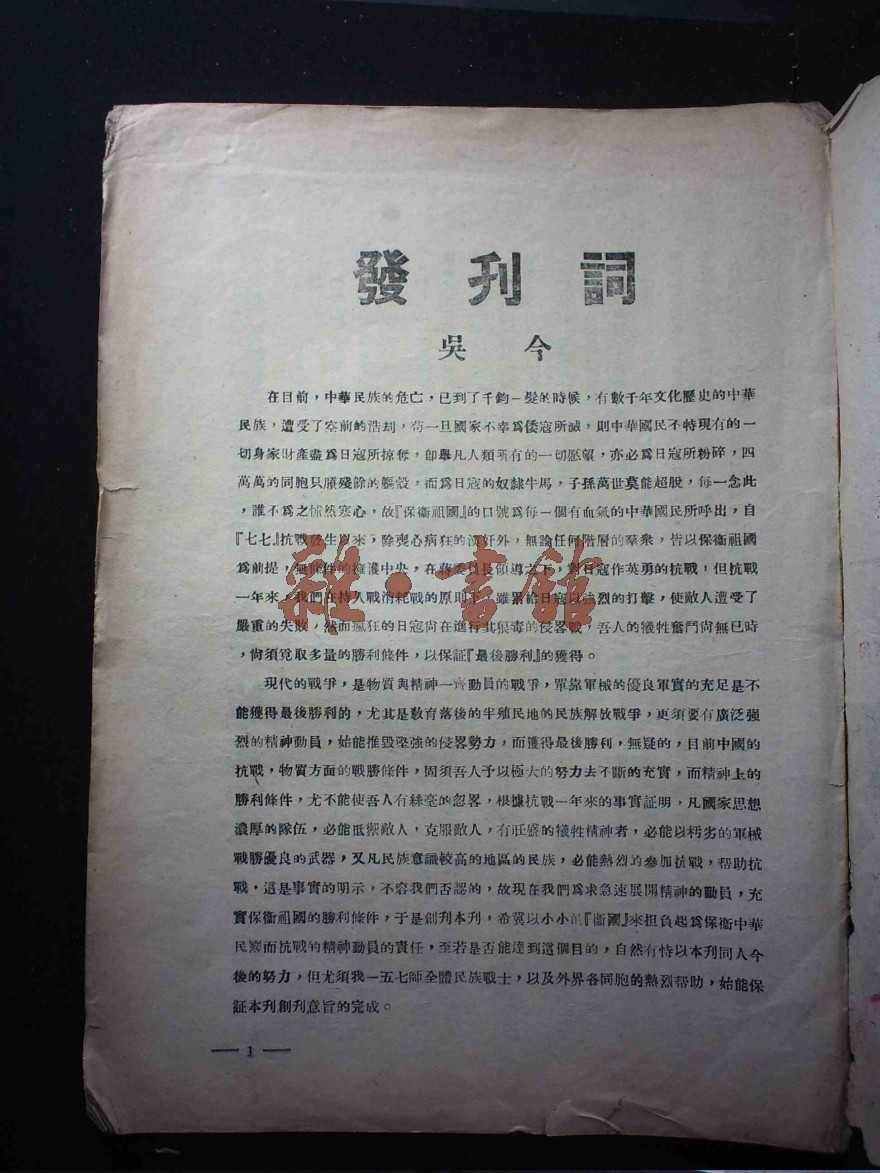 發刊詞
吳今
在目前，中華民族的危亡，已到了千鈞一髮的時候，有數千年文化歷史的中華
民族，遭受了空前的浩劫，苟一旦國家不幸爲倭寇所滅，則中華國民不特現有的一
切身家財產盡爲日寇所掠奪，卽舉凡人類所有的一切愿望，亦必爲日寇所粉碎，四
萬萬的同胞只賸殘餘的軀殼，而爲日寇的奴隸牛馬，子孫萬世莫能超脫，每一念此
，誰不爲之怵然寒心，故『保衞祖國』的口號爲每一個有血氣的中華國民所呼出，自
『七七』抗戰發生以來，除喪心病狂的漢奸外，無論任何階層的羣衆，皆以保衞祖國
爲前提，無條件的擁護中央，在蔣委員長領導之下，對日寇作英勇的抗戰，但抗戰
一年來，我們在持久戰消耗戰的原則下，雖累給日寇以強烈的打擊，使敵人遭受了
嚴重的失敗，然而瘋狂的日寇尙在進行其狠毒的侵畧戰，吾人的犠牲奮鬥尙無已時
，尙須覓取多量的勝利條件，以保証『最後勝利』的獲得。
現代的戰爭，是物質與精神一齊動員的戰爭，單靠軍械的優良軍實的充足是不
能獲得最後勝利的，尤其是敎育落後的半殖民地的民族解放戰爭，更須要有廣泛强
烈的精神動員，始能摧毀堅強的侵畧勢力，而獲得最後勝利，無疑的，目前中國的
抗戰，物質方面的戰勝條件，固須吾人予以極大的努力去不斷的充實，而精神上的
勝利條件，尤不能使吾人有絲毫的忽畧，根據抗戰一年來的事實証明，凡國家思想
濃厚的隊伍，必能抵禦敵人，克服敵人，有旺盛的犠牲精神者，必能以朽劣的軍械
戰勝優良的武器，又凡民族意識較高的地區的民族，必能熱烈的參加抗戰，帮助抗
戰，這是事實的明示，不容我們否認的，故現在我們爲求急速展開精神的動員，充
實保衞祖國的勝利條件，于是創刋本刋，希冀以小小的『衞國』來担負起爲保衞中華
民族而抗戰的精神動員的責任，至若是否能達到這個目的，自然有恃以本刋同人今
後的努力，但尤須我一五七師全體民族戰士，以及外界各同胞的熱烈帮助，始能保
証本刋創刋意旨的完成。
— 1 —
雜·書館